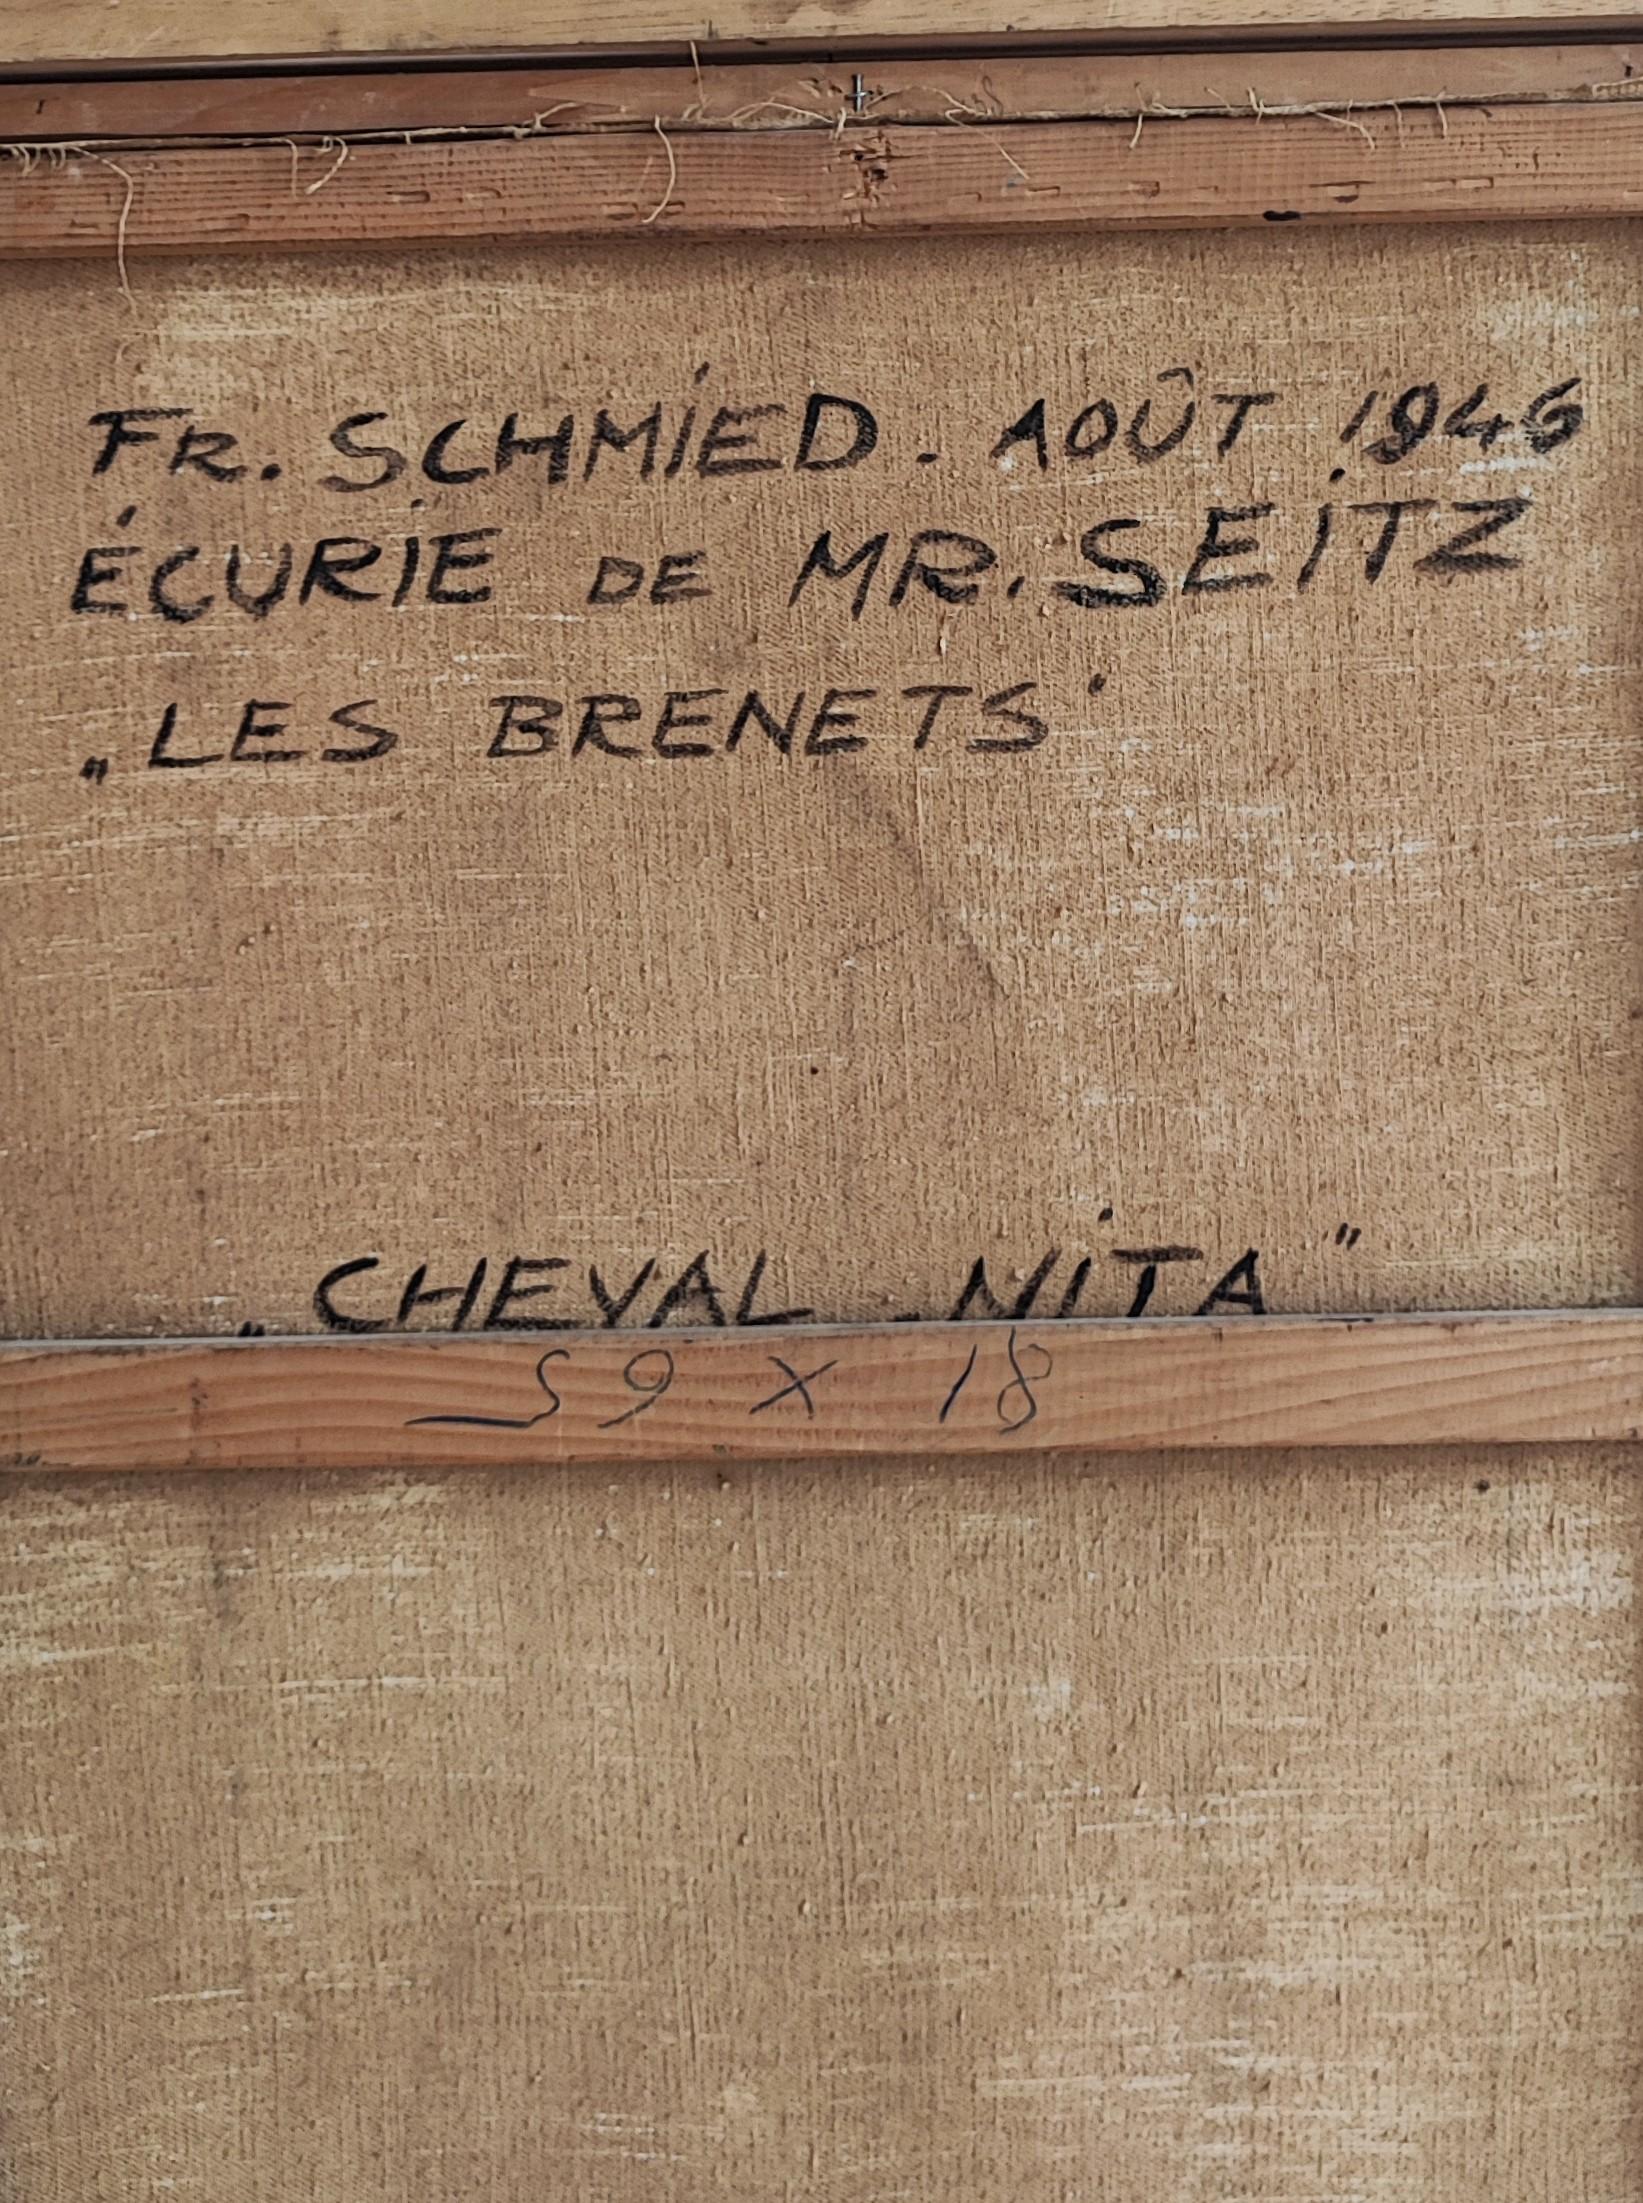 FR. SCHMIED. AOÛT 1946
ÉCURIE DE MR. SEITZ
„LES BRENETS"
„CHEVAL NITA"
59 x 18